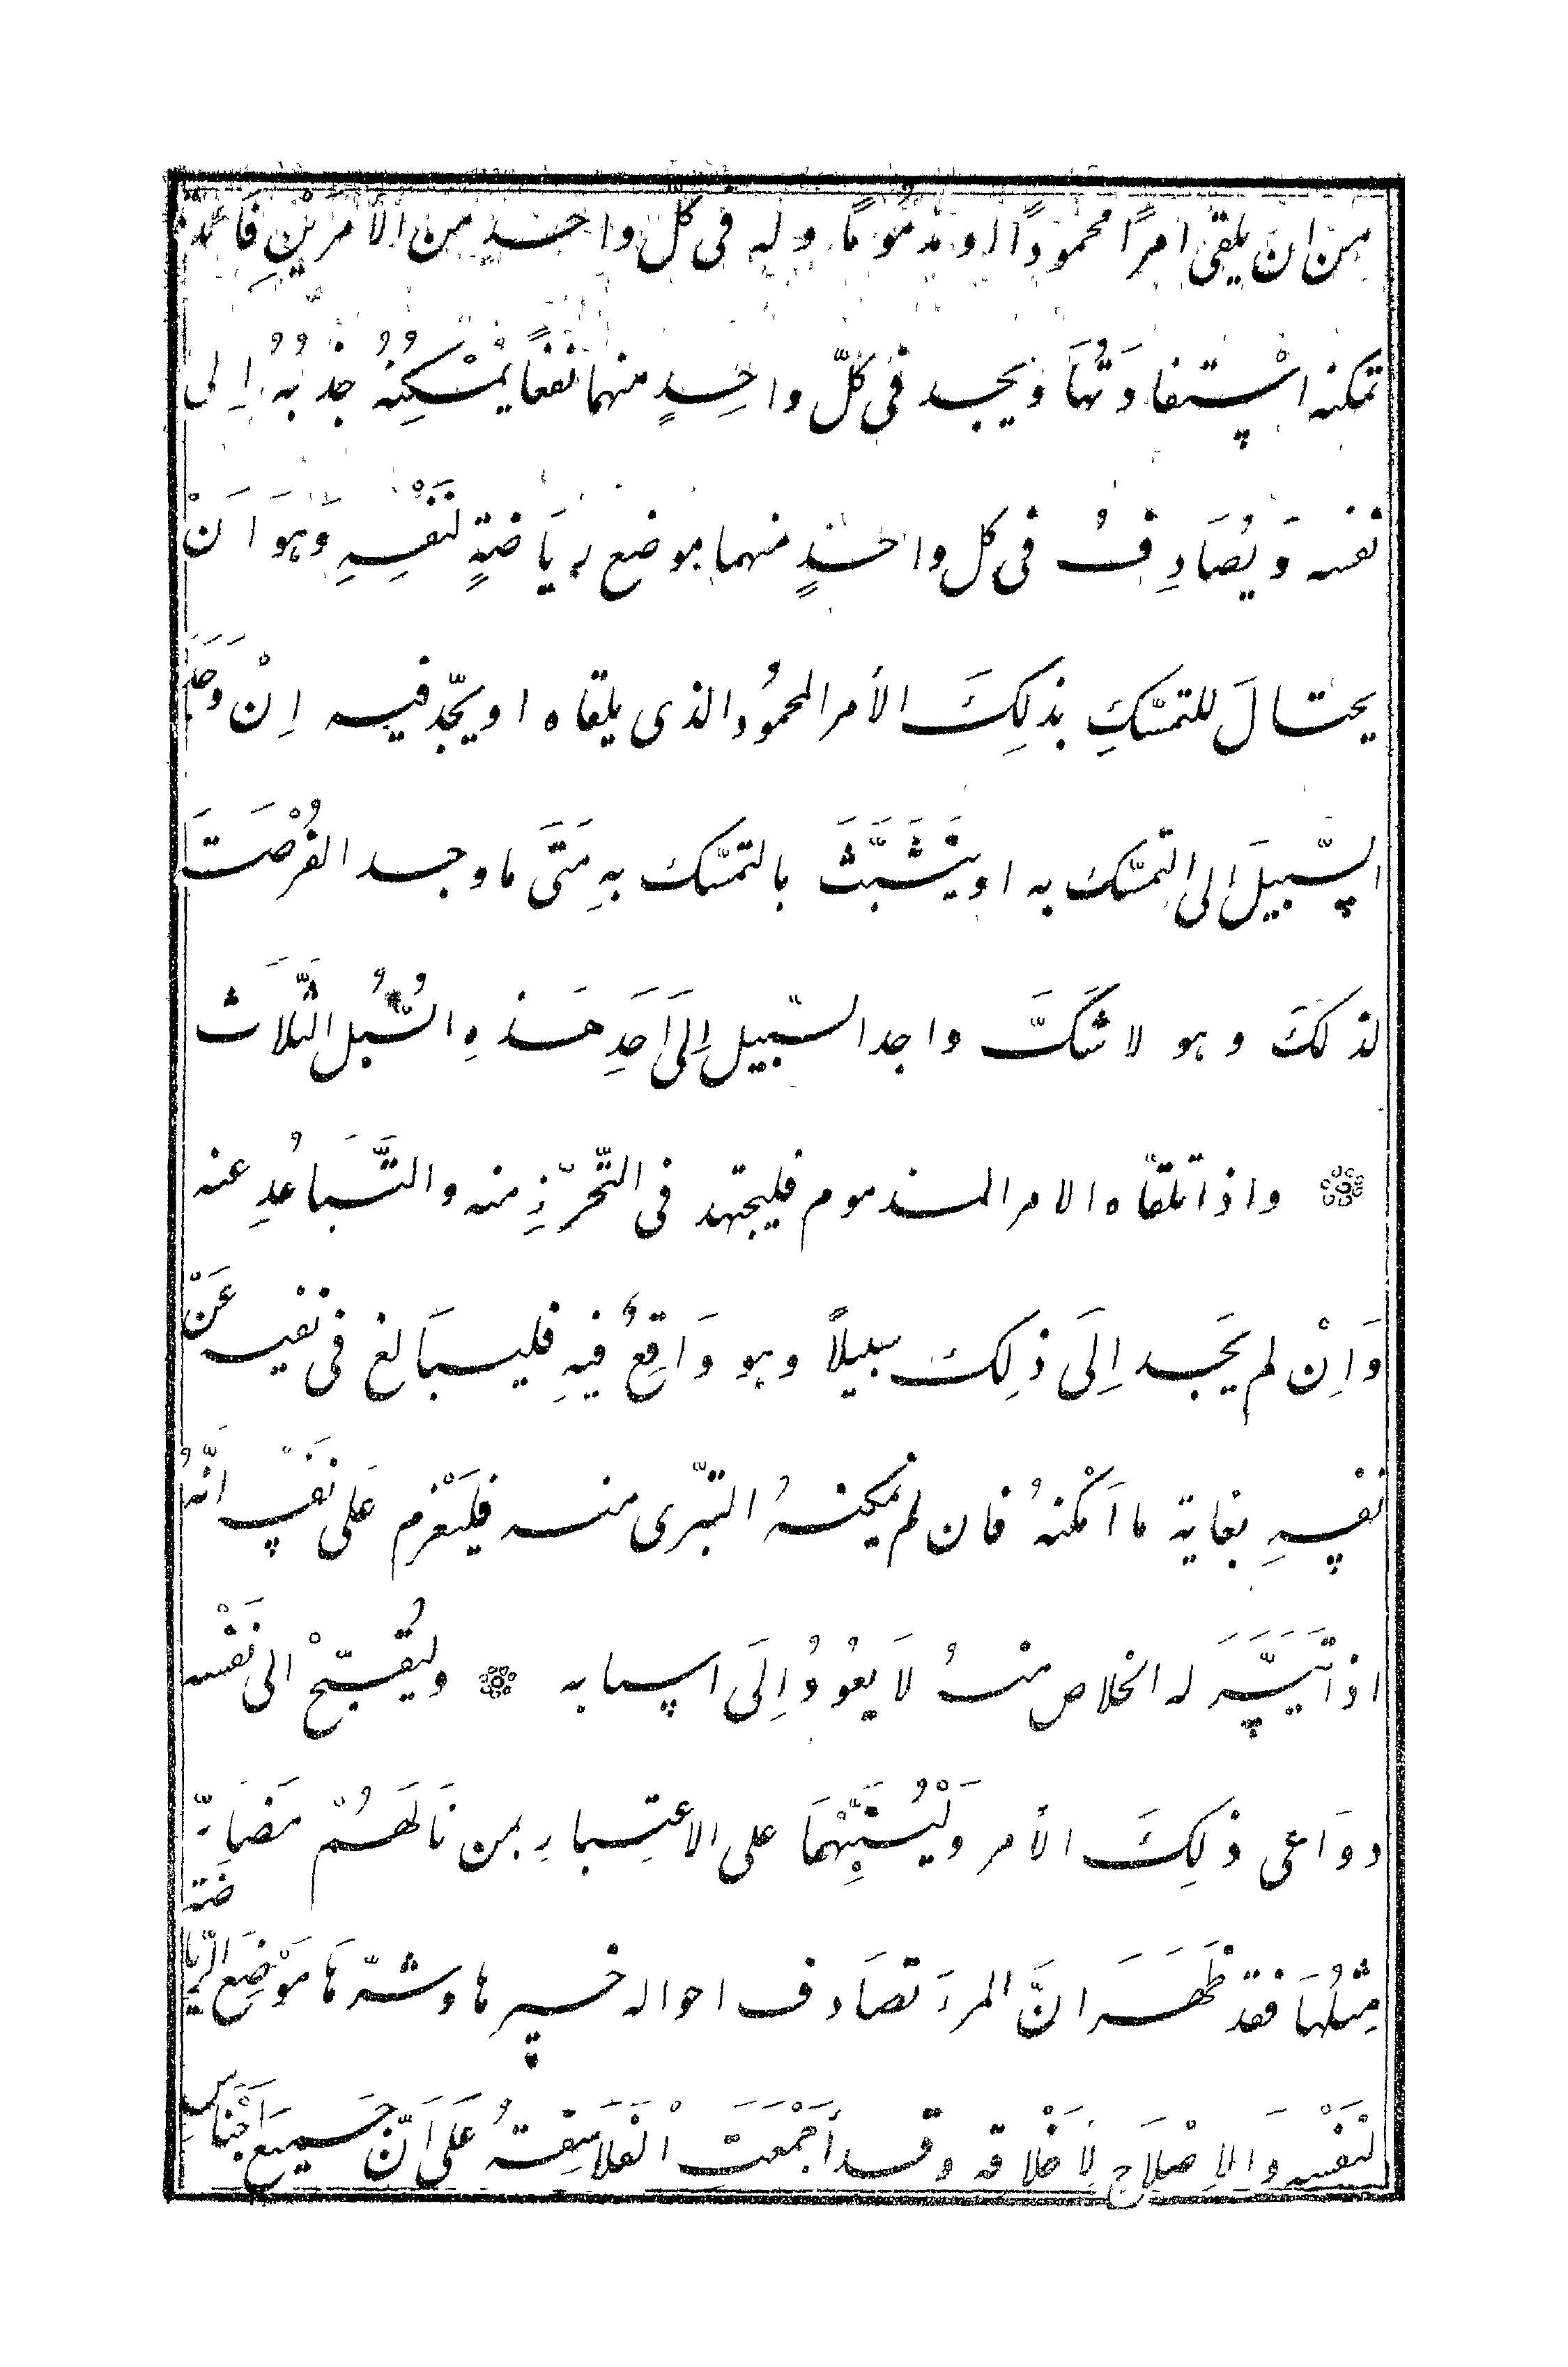 من ان يلقى امرًا محمودًا او مذمومًا وله فى كلّ واحد من الأمرَيْنِ فَائدة
تمكنه اسْتفادَتُهَا وَيجد فى كلّ واحِدٍ منهما نفعًا يُمْكِنُهُ جذبُهُ اِلى
نفسه وَيُصَادِفُ فى كل واحدٍ منهما موضع رِيَاضةٍ لنَفْسِهِ وَهوَ اَنْ
يحتالَ للتمسّكِ بذلِكَ الأمر المحمُود الذى يلقاه او يجّد فيه اِنْ وَجَدَ
السّبيلَ الى التمسّك به او يتَشَبَّثَ بالتمسّك بهِ مَتَى ما وجد الفُرْصَتَ
لذلكَ وهو لا شَكَّ واجد السّبيل اِلَى اَحَدِ هَذهِ السُّبُل الثَّلَاث
۞ واذا تلقّاه الامر المذموم فليجتهد فى التّحرّزِ منه والتَّبَاعُدِ عنه
وَاِنْ لم يَجد اِلَى ذلِكَ سبيلاً وهو وَاقِعٌ فيهِ فليبَالغ فى نفيه عَنْ
نفسِهِ بغاية ما اَمْكنهُ فان لم يمكنهُ التبّرى منه فليَعْزم عَلى نَفسه انَّهُ
اذا تَيَسَّرَ له الخلاص منهُ لَا يعُودُ اِلَى اسبابه ۞ وليُقبّحْ الى نَفْسه
دوَاعى ذلِكَ الأمر وَلْيُنَبِّهْهَا على الاعتِبارِ بمن نَالَهُمْ مَضَارّ
مِثلُهَا فقد ظَهَرَ انَّ المرءَ تصَادف احواله خيرها وشرّهَا مَوْضِعَ الرّيَاضَة
لنَفْسه وَالاِصْلَاحِ لِاَخْلَاقه وقد أَجْمَعَتَ الْفَلَاسَفةُ عَلَى اَنّ جَميع اَجْنَاسِ